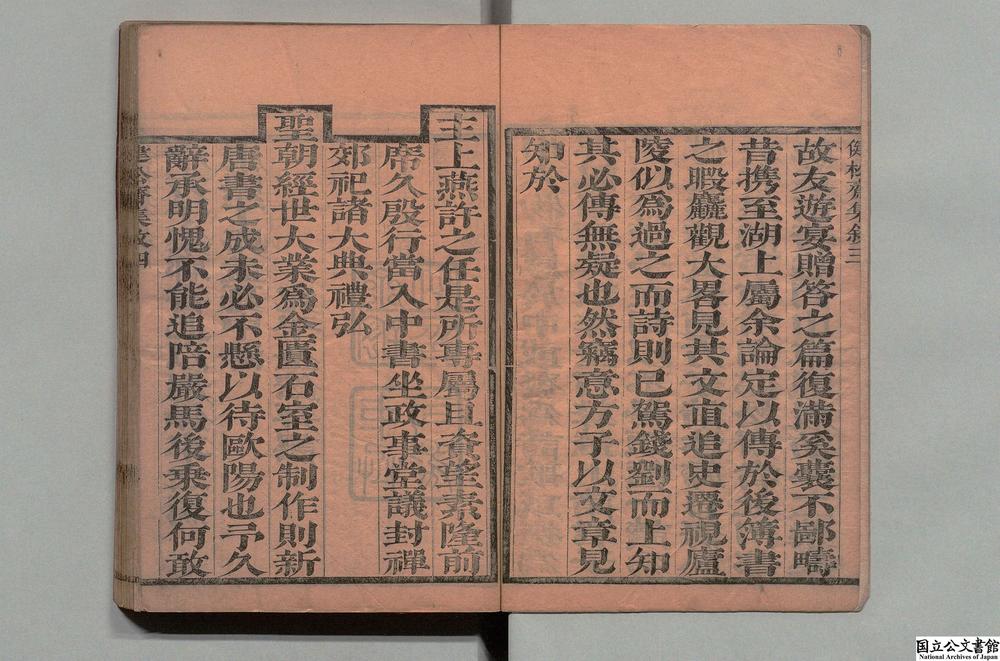 健松齋集敘三
故友遊宴贈答之篇復滿奚囊不鄙疇
昔攜至湖上屬余論定以傳於後簿書
之暇麤觀大畧見其文直追史遷視廬
陵似為過之而詩則已駕錢劉而上知
其必傳無疑也然竊意方子以文章見
知於
主上燕許之任是所專屬且資望素隆前
席久殷行當入中書坐政事堂議封禪
郊祀諸大典禮弘
聖朝經世大業為金匱石室之制作則新
唐書之成未必不懸以待歐陽也予久
辭承明愧不能追陪嚴馬後乗復何敢
健松齋集敘四
国立公文書館
National Archives of Japan